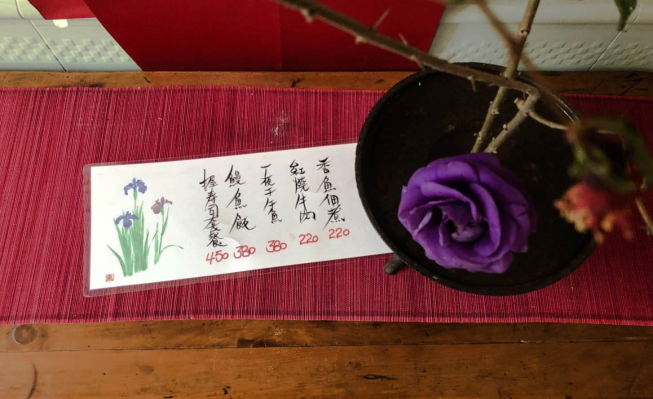 香魚佃煮 220
紅燒牛肉 220
一夜干午魚 380
鰻魚飯 380
握壽司套餐 450